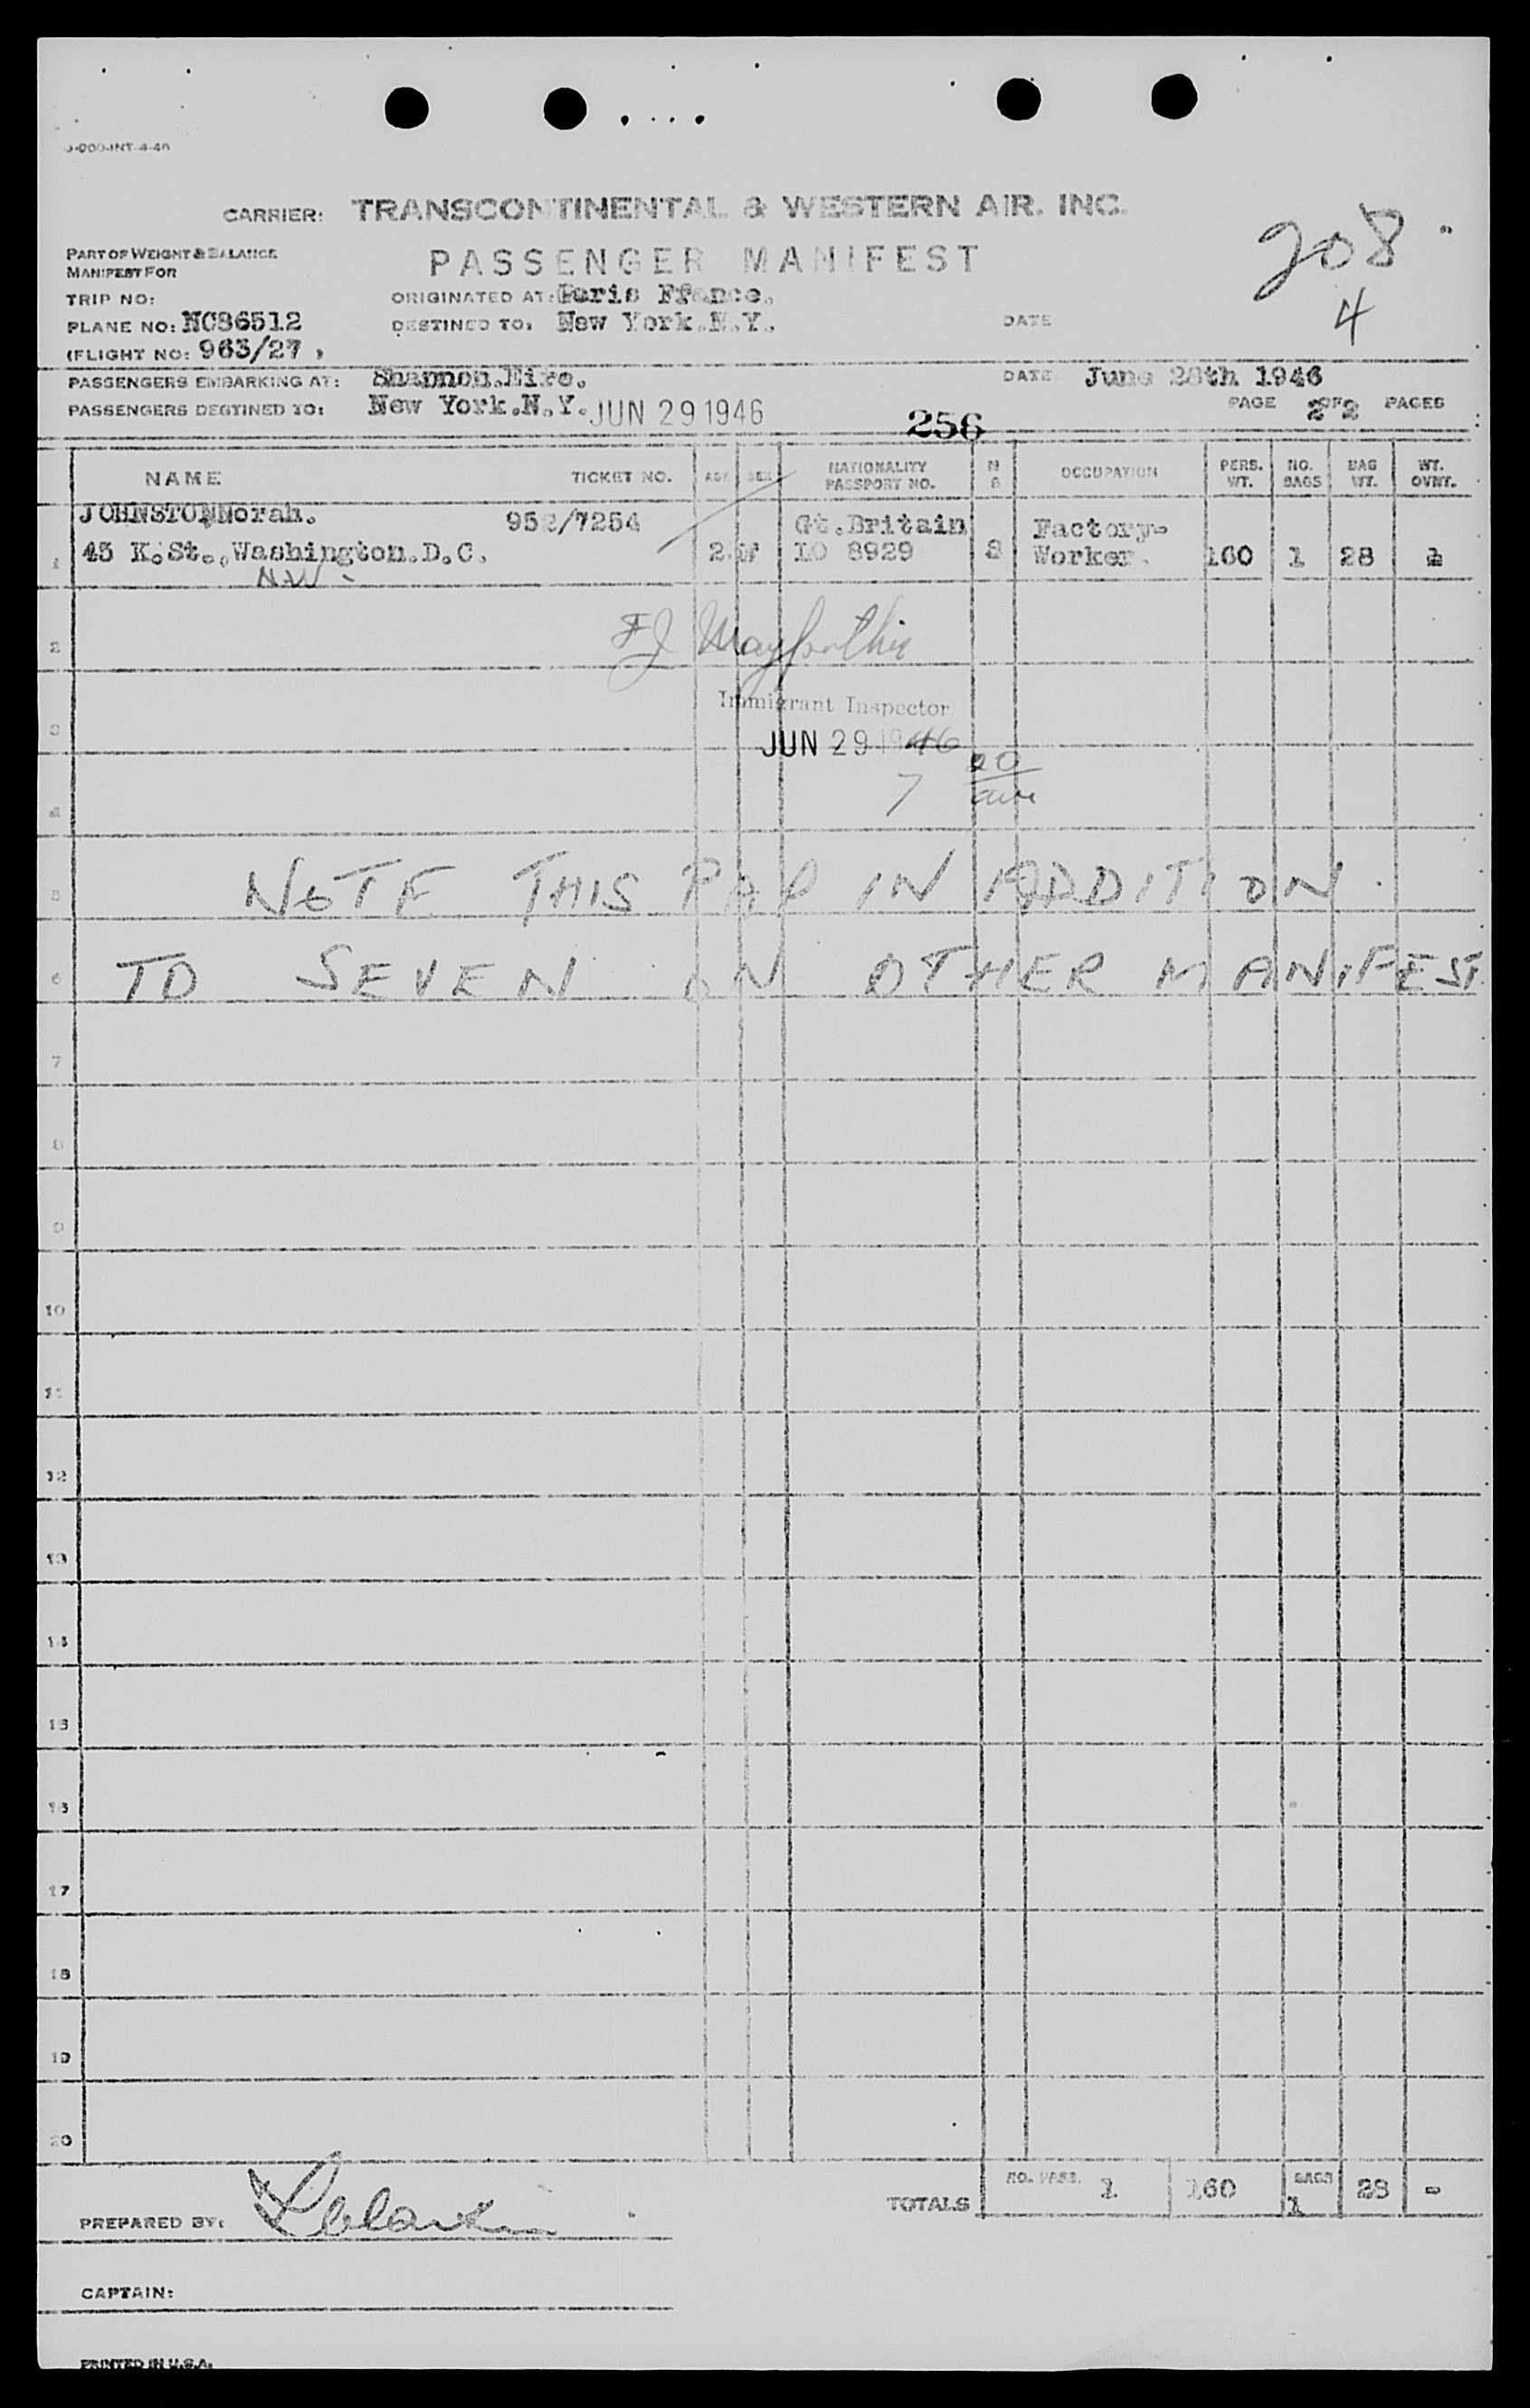 CARRIER: TRANSCONTINENTAL & WESTERN AIR. INC.
208
PART OF WEIGHT & BALANCE
MANIFEST FOR
PASSENGER MANIFEST
4
TRIP NO:
ORIGINATED AT: Paris France.
PLANE NO: NC86512
DESTINED TO: New York.N.Y.
DATE
(FLIGHT NO: 963/27 )
PASSENGERS EMBARKING AT: Shannon.Eire.
DATE June 28th 1946
PASSENGERS DESTINED TO: New York.N.Y. JUN 29 1946
256
PAGE 2 OF 2 PAGES
NAME TICKET NO. AGE SEX NATIONALITY PASSPORT NO. M S OCCUPATION PERS. WT. NO. BAGS BAG WT. WT. OVWT.
JOHNSTON Norah. 952/7254 Gt.Britain Factory-
1 45 K.St.,Washington.D.C. IO 8929 S Worker. 160 1 28
N.W.
2
Immigrant Inspector
3
JUN 29 1946
7 20
am
4
5 NOTE THIS IN ADDITION
6 TO SEVEN ON OTHER MANIFEST
7
8
9
10
11
12
13
14
15
16
17
18
19
20
TOTALS NO. PASS. 1 160 BAGS 1 28 -
PREPARED BY:
CAPTAIN:
PRINTED IN U.S.A.